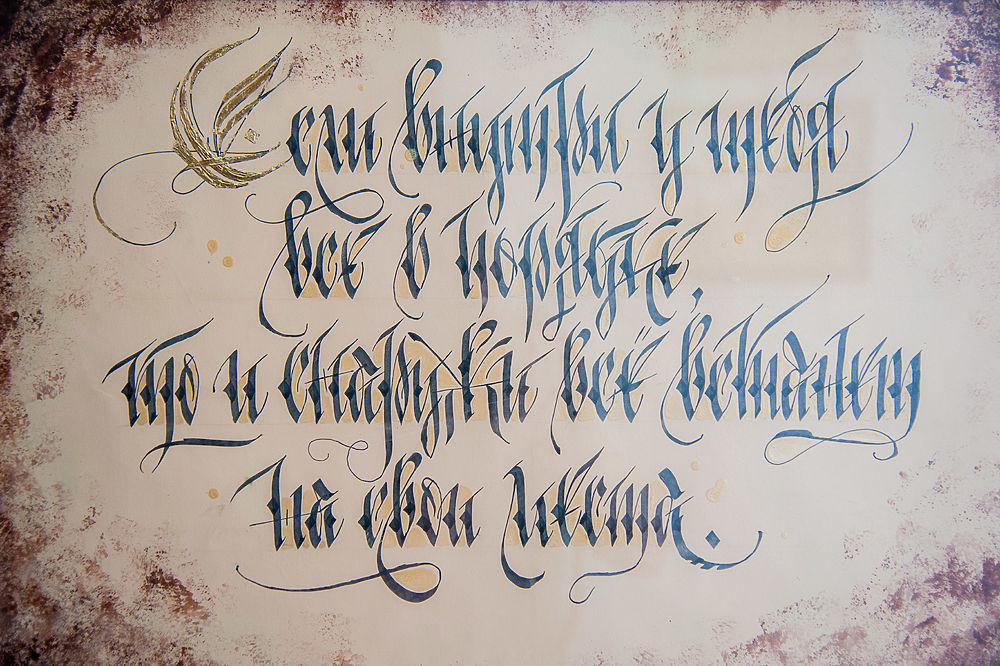 Если внутри у тебя
все в порядке,
то и снаружи всё встанет
на свои места.